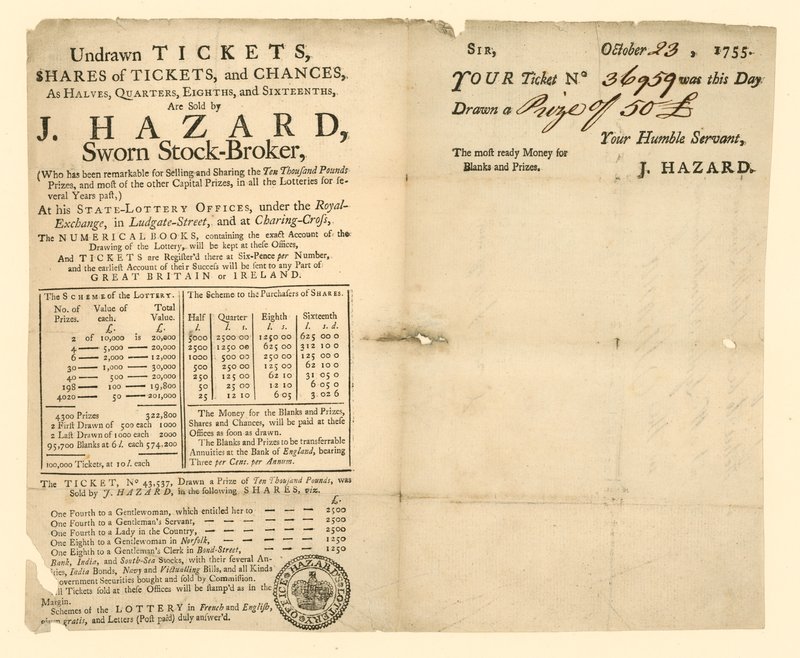 Undrawn TICKETS,
SHARES of TICKETS, and CHANCES,
As HALVES, QUARTERS, EIGHTHS, and SIXTEENTHS,
Are Sold by
J. HAZARD,
Sworn Stock-Broker,
(Who has been remarkable for Selling and Sharing the Ten Thouſand Pounds
Prizes, and moſt of the other Capital Prizes, in all the Lotteries for ſe-
veral Years paſt,)
At his STATE-LOTTERY OFFICES, under the Royal-
Exchange, in Ludgate-Street, and at Charing-Croſs,
The NUMERICAL BOOKS, containing the exact Account of the
Drawing of the Lottery, will be kept at theſe Offices,
And TICKETS are Regiſter'd there at Six-Pence per Number,
and the earlieſt Account of their Succeſs will be ſent to any Part of
GREAT BRITAIN or IRELAND.
The SCHEME of the LOTTERY.
No. of Prizes. Value of each. Total Value.
£. £.
2 of 10,000 is 20,000
4 — 5,000 — 20,000
6 — 2,000 — 12,000
30 — 1,000 — 30,000
40 — 500 — 20,000
198 — 100 — 19,800
4020 — 50 — 201,000
4300 Prizes 322,800
2 Firſt Drawn of 500 each 1000
2 Laſt Drawn of 1000 each 2000
95,700 Blanks at 6 l. each 574,200
100,000 Tickets, at 10 l. each
The Scheme to the Purchaſers of SHARES.
Half Quarter Eighth Sixteenth
l. l. s. l. s. l. s. d.
5000 2500 00 1250 00 625 00 0
2500 1250 00 625 00 312 10 0
1000 500 00 250 00 125 00 0
500 250 00 125 00 62 10 0
250 125 00 62 10 31 05 0
50 25 00 12 10 6 05 0
25 12 10 6 05 3 02 6
The Money for the Blanks and Prizes,
Shares and Chances, will be paid at theſe
Offices as ſoon as drawn.
The Blanks and Prizes to be transferrable
Annuities at the Bank of England, bearing
Three per Cent. per Annum.
The TICKET, No 43,537, Drawn a Prize of Ten Thouſand Pounds, was
Sold by J. HAZARD, in the following SHARES, viz.
£.
One Fourth to a Gentlewoman, which entitled her to — — — 2500
One Fourth to a Gentleman's Servant, — — — — 2500
One Fourth to a Lady in the Country, — — — — 2500
One Eighth to a Gentlewoman in Norfolk, — — — — 1250
One Eighth to a Gentleman's Clerk in Bond-Street, — — — 1250
Bank, India, and South-Sea Stocks, with their ſeveral An-
ities, India Bonds, Navy and Victualling Bills, and all Kinds
overnment Securities bought and ſold by Commiſſion.
ll Tickets ſold at theſe Offices will be ſtamp'd as in the
Margin.
Schemes of the LOTTERY in French and Engliſh,
gratis, and Letters (Poſt paid) duly anſwer'd.
HAZARD'S LOTTERY OFFICE
SIR, October 23, 1755.
YOUR Ticket No 36959 was this Day
Drawn a Prize of 50 £
Your Humble Servant,
The moſt ready Money for
Blanks and Prizes.
J. HAZARD.